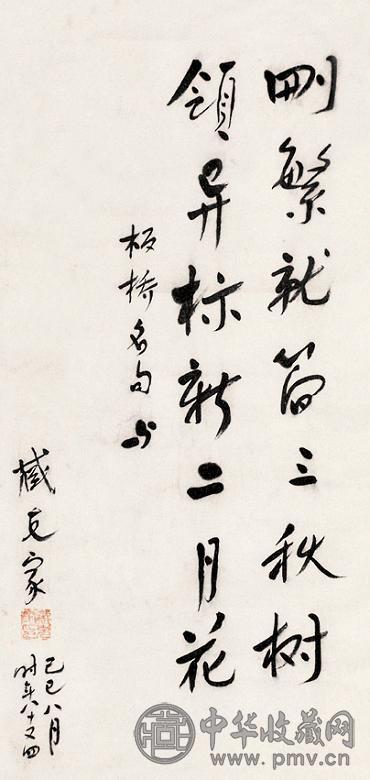 删繁就简三秋树
领异标新二月花
板桥名句
臧克家
己巳八月
时年八十又四
中华收藏网
www.pmv.cn